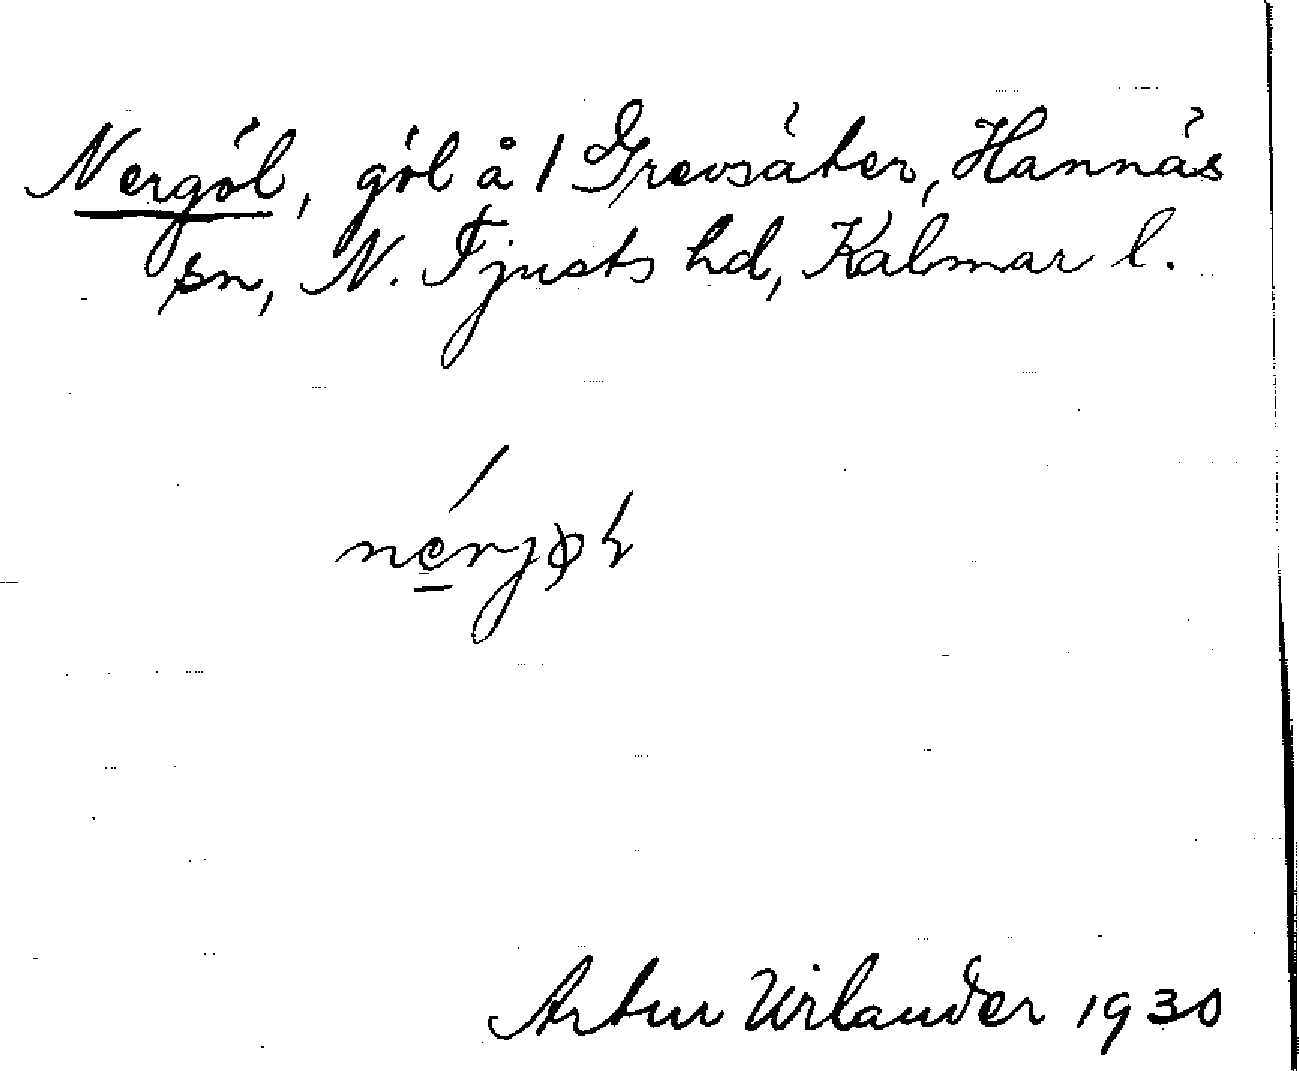 Nergöl, göl å 1 Grevsäter, Hannäs
sn, N. Tjusts hd, Kalmar l.
Artur Wilander 1930